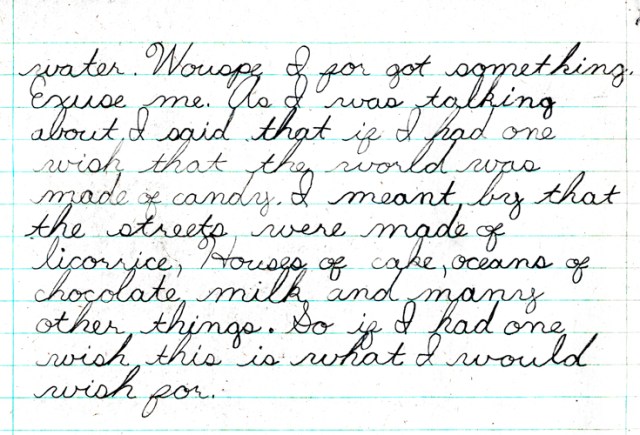 water. Wouspe I for got something.
Exuse me. As I was talking
about I said that if I had one
wish that the world was
made of candy. I meant by that
the streets were made of
licorrice, Houses of cake, oceans of
chocolate milk and many
other things. So if I had one
wish this is what I would
wish for.